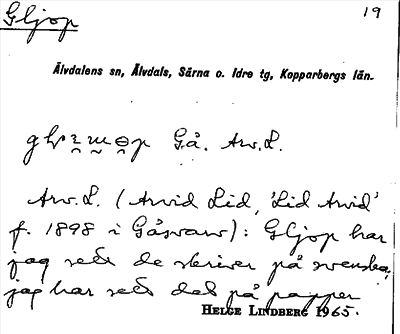 Gljop
19
Älvdalens sn, Älvdals, Särna o. Idre tg, Kopparbergs län.
Gå. Arv. L.
Arv. L. (Arvid Lid, 'Lid Arvid'
f. 1898 i Gåsvarv): Gljop har
jag sett de skriver på svenska,
jag har sett det på papper
HELGE LINDBERG 1965.